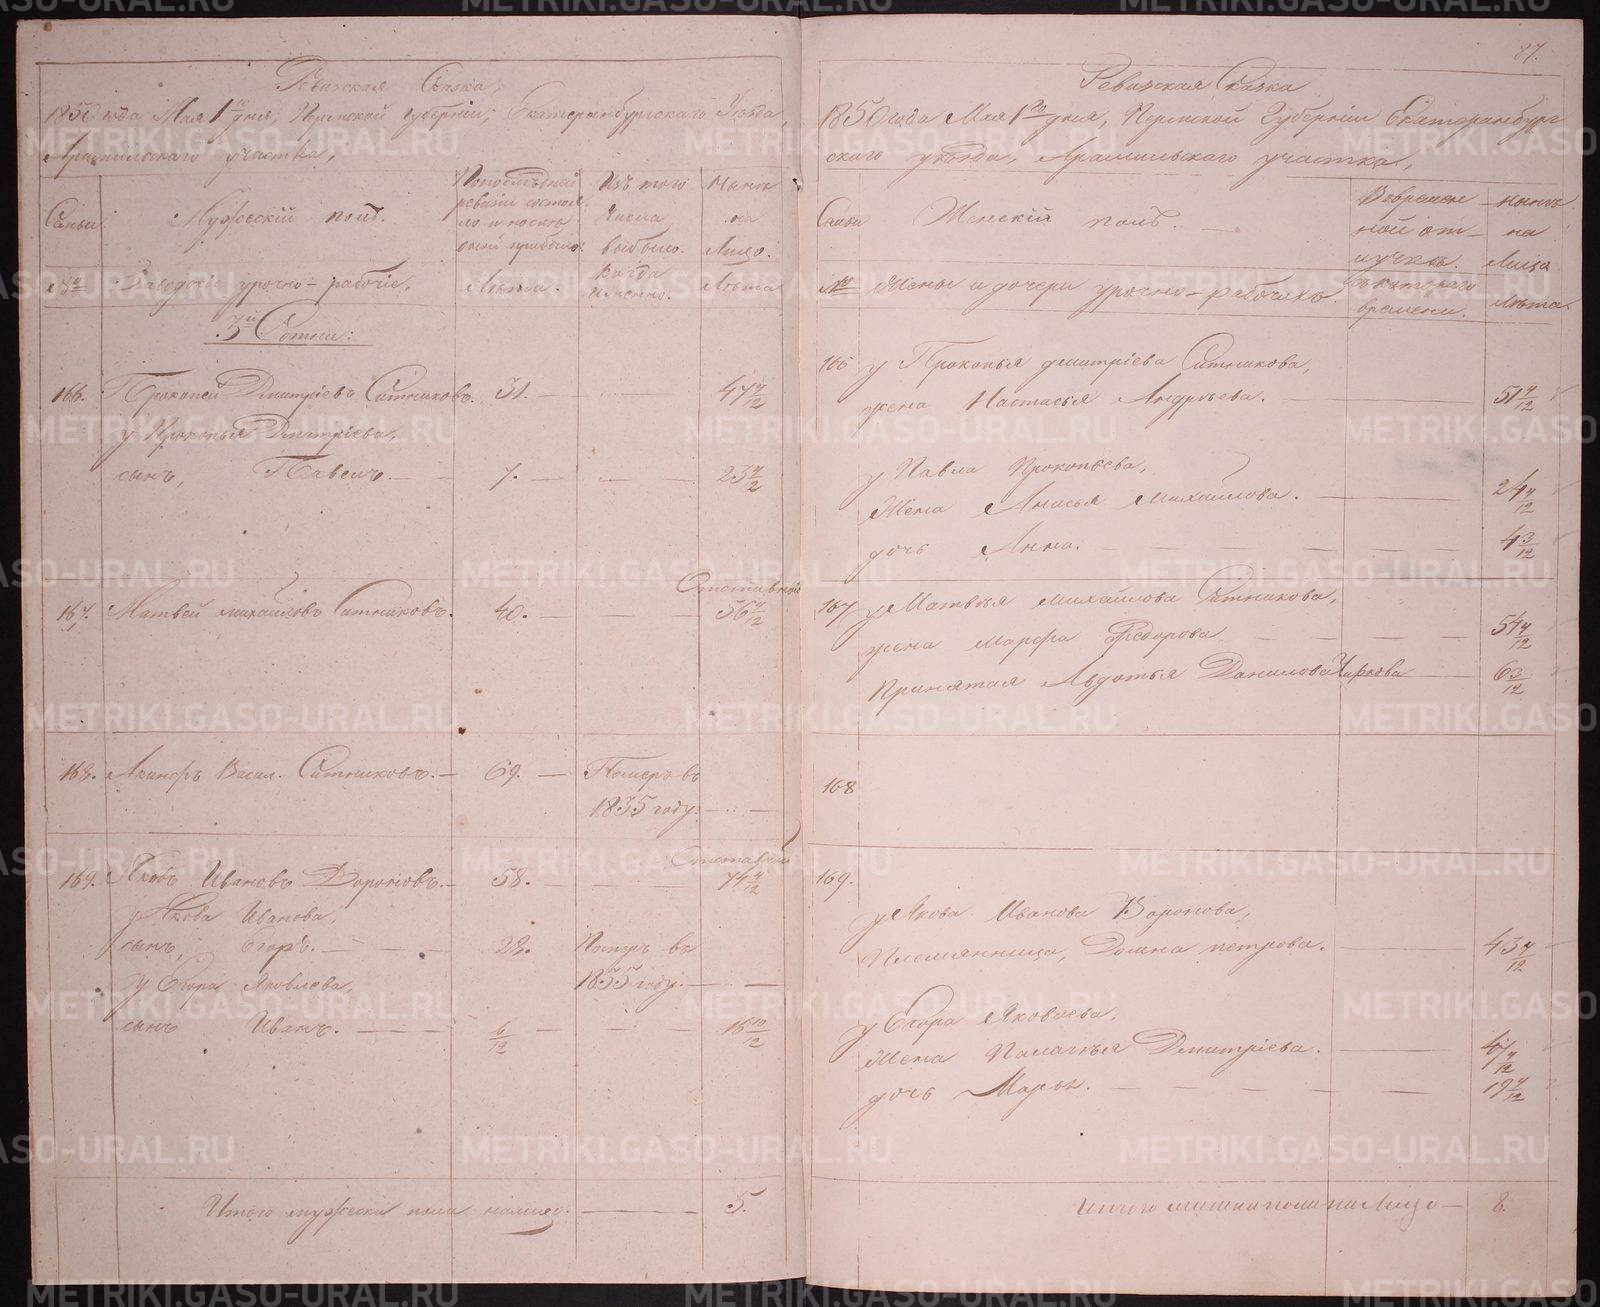 Ревизская Сказка,
1850 года Мая 1го дня, Пермской губернии, Екатеринбургскаго Уезда,
Арамильскаго участка,
Семьи
Мужескій полъ.
По последней
ревизіи состоя-
ло и после
оной прибыло.
Изъ того
числа
выбыло.
Ныне
на
Лицо.
№
Заводскіе урочно-рабочіе,
Лета.
Когда
именно.
Лета
3й Сотни:
166. Прокопей Дмитріевъ Ситниковъ. 31. 47 4/12
у Прокопья Дмитріева,
сынъ, Павелъ. 7. 23 4/12
Отставной
167. Матвей Михайловъ Ситниковъ. 40. 56 4/12
168. Акинфъ Васил. Ситниковъ. 69. Померъ въ
1835 году.
Отставной
169. Яковъ Ивановъ Вороновъ. 58. 74 4/12
у Якова Иванова,
сынъ, Егоръ. 28. Померъ въ
у Егора Яковлева, 1835 году.
сынъ Иванъ. 6/12 16 10/12
Итого мужеска пола налицо. 5.
87.
Ревизская Сказка
1850 года Мая 1го дня, Пермской Губерніи Екатеринбург-
скаго уезда, Арамильскаго участка,
Семьи
Женскій полъ.
Во времен-
ной от-
лучке.
Ныне
на
Лицо
№
Жены и дочери урочно-рабочихъ.
съ котораго
времени.
Лета.
166 у Прокопья Дмитріева Ситникова,
жена Настасья Андреева. 51 4/12
у Павла Прокопьева,
Жена Анисья Михайлова. 24 4/12
дочь Анна. 4 3/12
167 у Матвея Михайлова Ситникова,
жена Марфа Федорова 54 4/12
Принятая Авдотья Данилова Чиркова 6 3/12
168
169.
у Якова Иванова Воронова,
Племянница, Домна Петрова. 43 4/12
у Егора Яковлева,
Жена Палагея Дмитріева. 41 4/12
дочь Марья. 19 4/12
Итого женска пола на Лицо 8.
METRIKI.GASO-URAL.RU